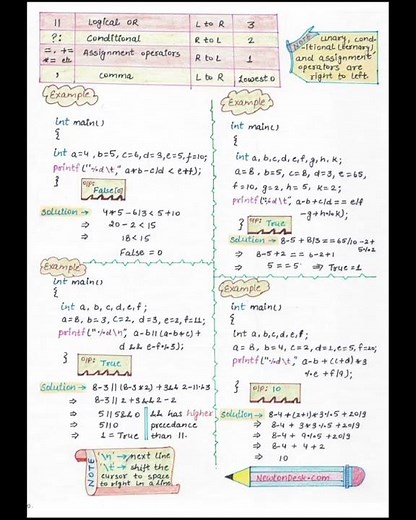 || Logical OR L to R 3
?: Conditional R to L 2
=, += *= etc. Assignment operators R to L 1
, comma L to R Lowest 0
Note unary, cond-
itional (ternary)
and assignment
operators are
right to left
Example
int main()
{
int a=4, b=5, c=6, d=3, e=5, f=10;
printf("%d\t", a*b-c/d < e+f);
}
O/P:
False[0]
Solution → 4*5-6/3 < 5+10
⇒ 20-2 < 15
⇒ 18 < 15
False = 0
Example
int main()
{
int a, b, c, d, e, f, g, h, k;
a=8, b=5, c=8, d=3, e=65,
f=10, g=2, h=5, k=2;
printf("%d\t", a-b+c/d == e/f
-g+h%k);
}
O/P: True
Solution → 8-5+8/3 == 65/10-2+
5%2
⇒ 8-5+2 == 6-2+1
⇒ 5 == 5 ⇒ True=1
Example
int main()
{
int a, b, c, d, e, f;
a=8, b=3, c=2, d=3, e=2, f=11;
printf("%d\n", a-b||(a-b*c)+
d && e-f%3);
}
O/P:
True
Solution → 8-3||(8-3*2)+3&&2-11%3
⇒ 8-3||2+3&&2-2
⇒ 5||5&&0
⇒ 5||0
⇒ 1 = True
&& has higher
precedance
than ||.
NOTE
'\n' → next line
'\t' → shift the
cursor to space
to right in a line.
Example
int main()
{
int a, b, c, d, e, f;
a=8, b=4, c=2, d=1, e=5, f=20;
printf("%d\t", a-b+(c+d)*3
%e+f/9);
}
O/P: 10
Solution → 8-4+(2+1)*3%5+20/9
⇒ 8-4+3*3%5+20/9
⇒ 8-4+9%5+20/9
⇒ 8-4+4+2
⇒ 10
NewtonDesk.com